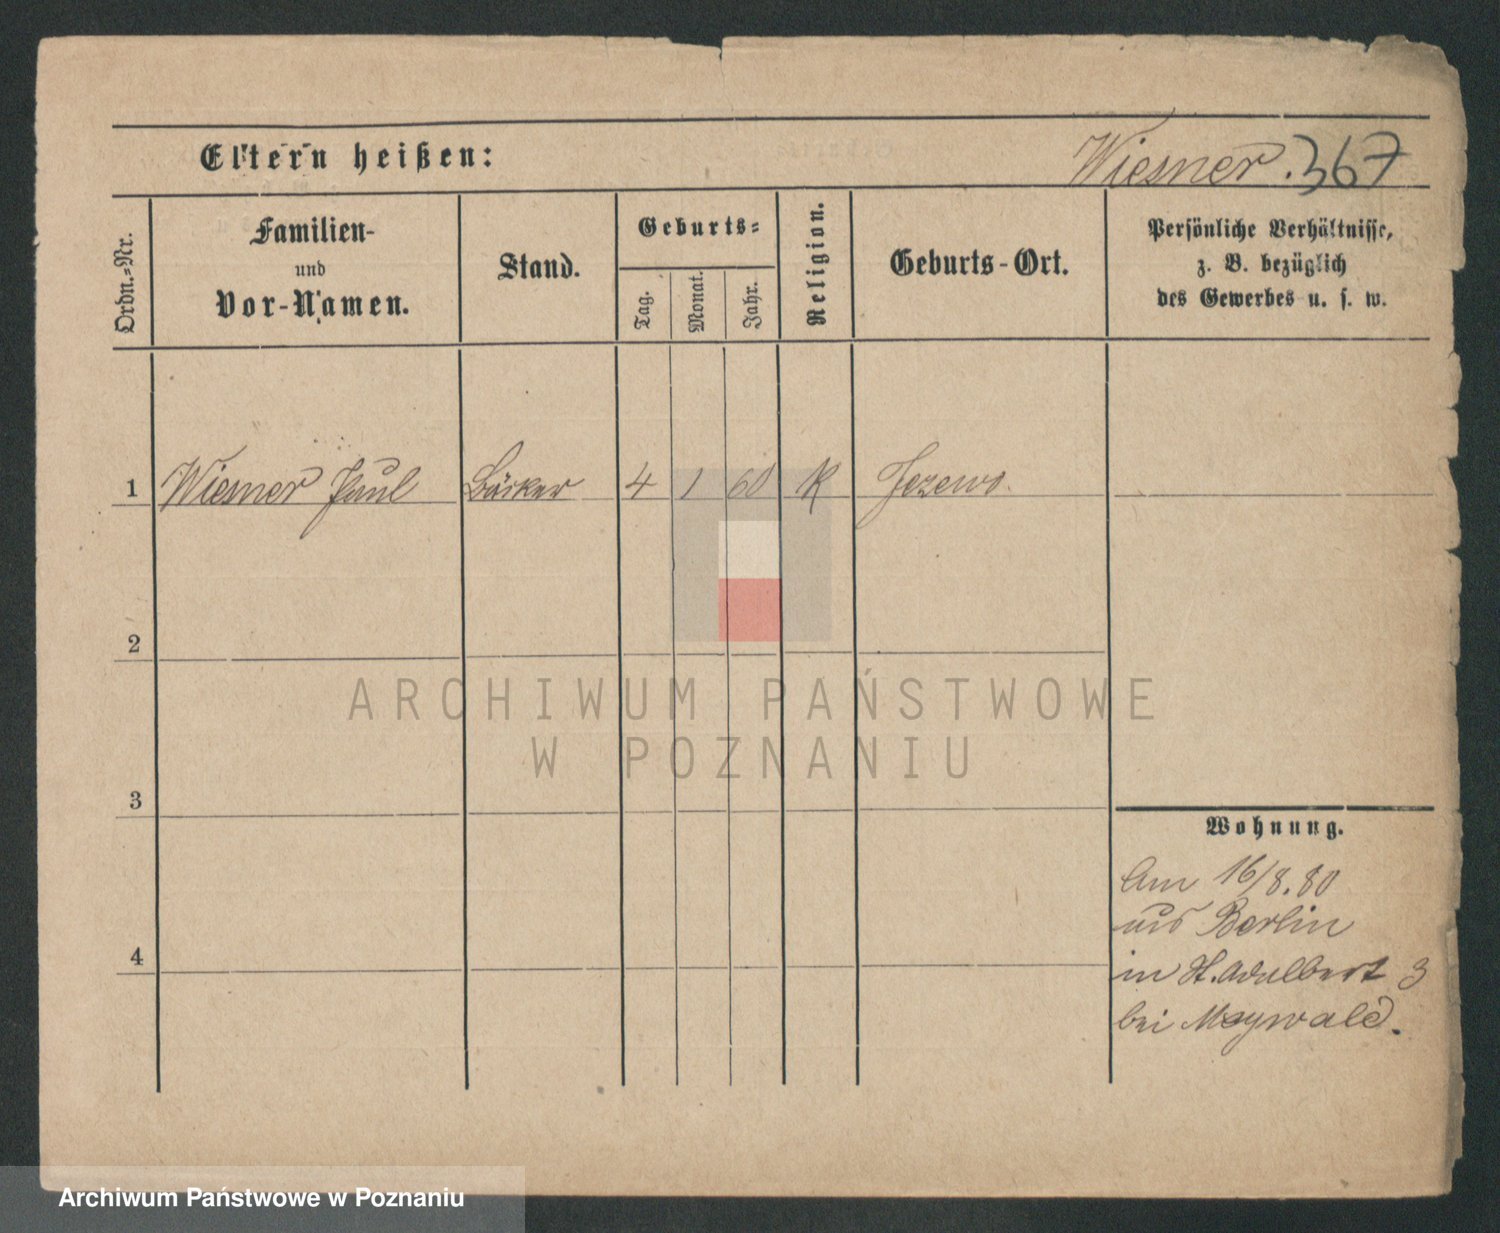 Eltern heißen:
Wiesner. 367
Ordn.-Nr.
Familien-
und
Vor-Namen.
Stand.
Geburts-
Tag.
Monat.
Jahr.
Religion.
Geburts-Ort.
Persönliche Verhältnisse,
z. B. bezüglich
des Gewerbes u. s. w.
1 Wiesner Paul Bäcker 4 1 60 K Jezewo.
2
ARCHIWUM PAŃSTWOWE
W POZNANIU
3
Wohnung.
Am 16/8.80
aus Berlin
in St. Adalbert 3
bei Maywald.
4
Archiwum Państwowe w Poznaniu